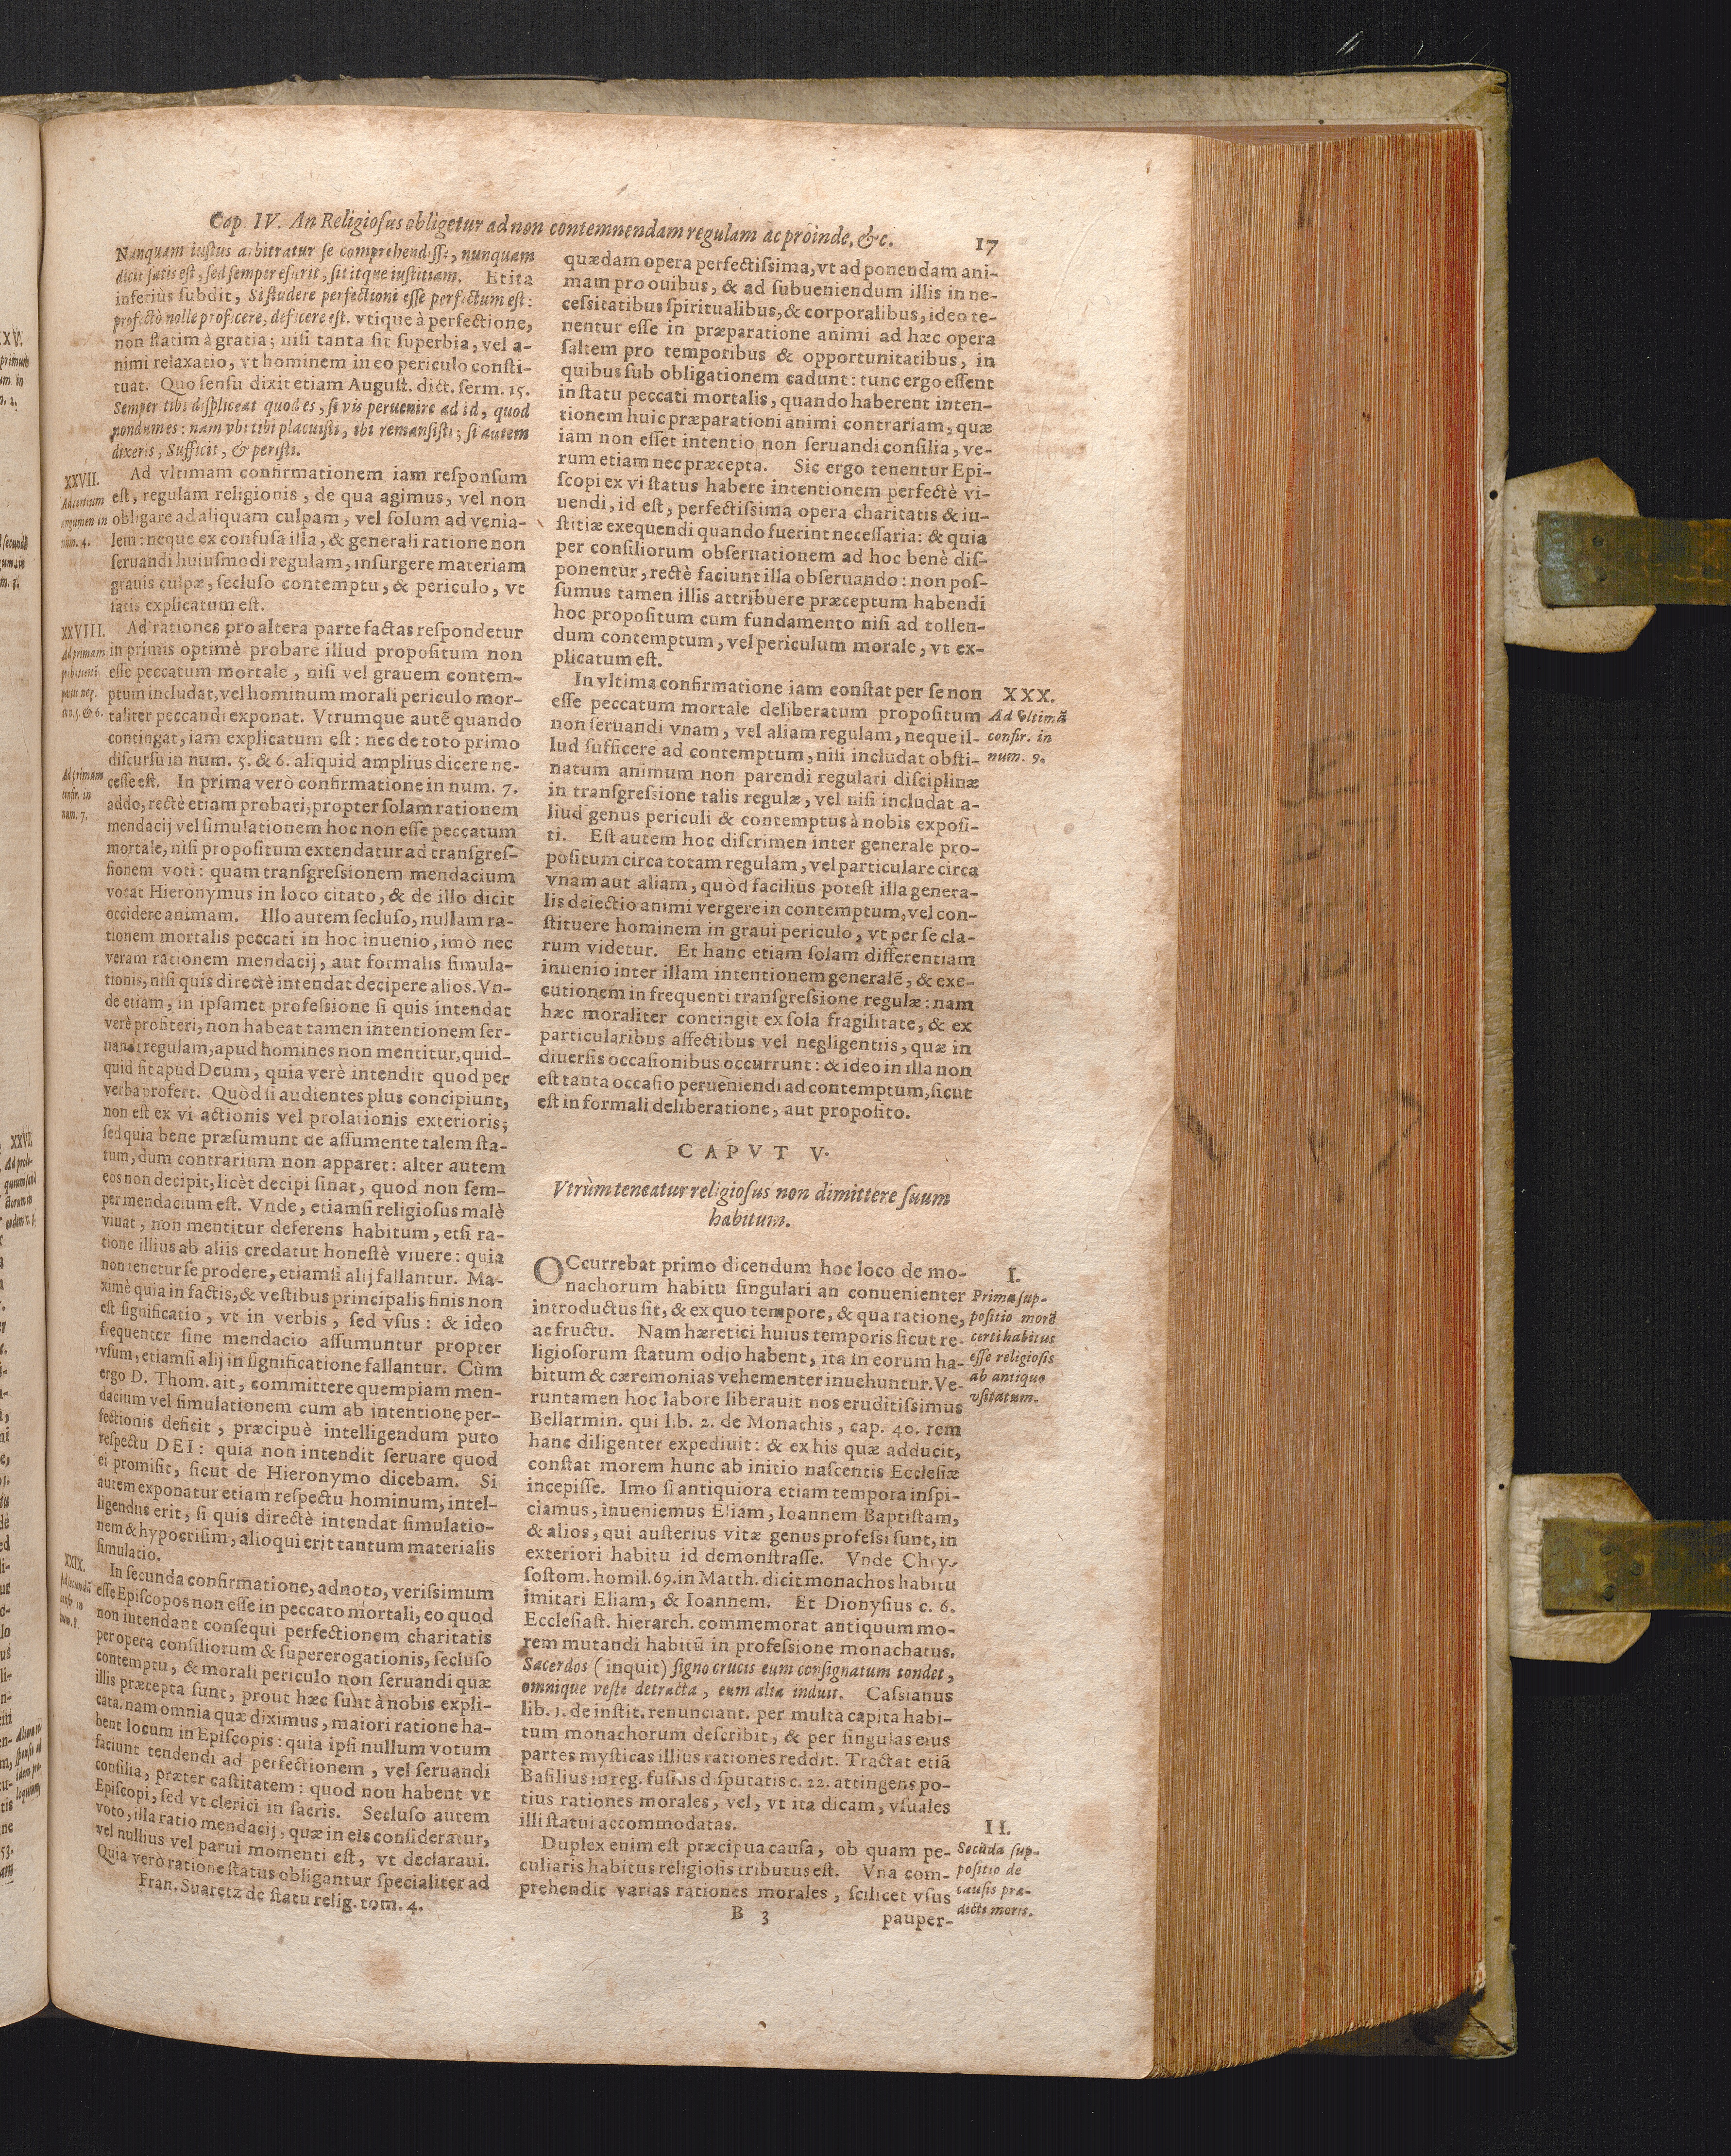 Cap. IV. An Religiosus obligetur ad non contemnendam regulam ac proinde, &c.
17
Nunquam iustus arbitratur se comprehendisse, nunquam
dicit satis est, sed semper esurit, sititque iustitiam. Et ita
inferius subdit, Si studere perfectioni esse perfectum est:
profectò nolle proficere, deficere est. vtique à perfectione,
non statim à gratia; nisi tanta sit superbia, vel a-
nimi relaxatio, vt hominem in eo periculo consti-
tuat. Quo sensu dixit etiam August. dict. serm. 15.
Semper tibi displiceat quod es, si vis peruenire ad id, quod
nondum es: nam vbi tibi placuisti, ibi remansisti; si autem
dixeris, Sufficit, & peristi.
XXVII.
Ad tertium
argumen in
num. 4.
Ad vltimam confirmationem iam responsum
est, regulam religionis, de qua agimus, vel non
obligare ad aliquam culpam, vel solum ad venia-
lem: neque ex confusa illa, & generali ratione non
seruandi huiusmodi regulam, insurgere materiam
grauis culpæ, secluso contemptu, & periculo, vt
satis explicatum est.
XXVIII.
Ad primam
parti neg.
in 5. & 6.
Ad rationes pro altera parte factas respondetur
in primis optimè probare illud propositum non
esse peccatum mortale, nisi vel grauem contem-
ptum includat, vel hominum morali periculo mor-
taliter peccandi exponat. Vtrumque autē quando
contingat, iam explicatum est: nec de toto primo
discursu in num. 5. & 6. aliquid amplius dicere ne-
cesse est. In prima verò confirmatione in num. 7.
Ad primam
confir. in
num. 7.
addo, rectè etiam probari, propter solam rationem
mendacij vel simulationem hoc non esse peccatum
mortale, nisi propositum extendatur ad transgres-
sionem voti: quam transgressionem mendacium
vocat Hieronymus in loco citato, & de illo dicit
occidere animam. Illo autem secluso, nullam ra-
tionem mortalis peccati in hoc inuenio, imò nec
veram rationem mendacij, aut formalis simula-
tionis, nisi quis directè intendat decipere alios. Vn-
de etiam, in ipsamet professione si quis intendat
verè profiteri, non habeat tamen intentionem ser-
uandi regulam, apud homines non mentitur, quid-
quid sit apud Deum, quia verè intendit quod per
verba profert. Quòd si audientes plus concipiunt,
non est ex vi actionis vel prolationis exterioris;
sed quia bene præsumunt de assumente talem sta-
tum, dum contrarium non apparet: alter autem
eos non decipit, licèt decipi sinat, quod non sem-
per mendacium est. Vnde, etiamsi religiosus malè
viuat, non mentitur deferens habitum, etsi ra-
tione illius ab aliis credatut honestè viuere: quia
non tenetur se prodere, etiamsi alij fallantur. Ma-
ximè quia in factis, & vestibus principalis finis non
est significatio, vt in verbis, sed vsus: & ideo
frequenter sine mendacio assumuntur propter
vsum, etiamsi alij in significatione fallantur. Cùm
ergo D. Thom. ait, committere quempiam men-
dacium vel simulationem cum ab intentione per-
fectionis deficit, præcipuè intelligendum puto
respectu DEI: quia non intendit seruare quod
ei promisit, sicut de Hieronymo dicebam. Si
autem exponatur etiam respectu hominum, intel-
ligendus erit, si quis directè intendat simulatio-
nem & hypocrisim, alioqui erit tantum materialis
simulatio.
XXIX.
Ad secundā
confir. in
num. 8.
In secunda confirmatione, adnoto, verissimum
esse Episcopos non esse in peccato mortali, eo quod
non intendant consequi perfectionem charitatis
per opera consiliorum & supererogationis, secluso
contemptu, & morali periculo non seruandi quæ
illis præcepta sunt, prout hæc sunt à nobis expli-
cata. nam omnia quæ diximus, maiori ratione ha-
bent locum in Episcopis: quia ipsi nullum votum
faciunt tendendi ad perfectionem, vel seruandi
consilia, præter castitatem: quod nou habent vt
Episcopi, sed vt clerici in sacris. Secluso autem
voto, illa ratio mendacij, quæ in eis consideratur,
vel nullius vel parui momenti est, vt declaraui.
Quia verò ratione status obligantur specialiter ad
Fran. Suaretz de statu relig. tom. 4.
quædam opera perfectissima, vt ad ponendam ani-
mam pro ouibus, & ad subueniendum illis in ne-
cessitatibus spiritualibus, & corporalibus, ideo te-
nentur esse in præparatione animi ad hæc opera
saltem pro temporibus & opportunitatibus, in
quibus sub obligationem cadunt: tunc ergo essent
in statu peccati mortalis, quando haberent inten-
tionem huic præparationi animi contrariam, quæ
iam non esset intentio non seruandi consilia, ve-
rum etiam nec præcepta. Sic ergo tenentur Epi-
scopi ex vi status habere intentionem perfectè vi-
uendi, id est, perfectissima opera charitatis & iu-
stitiæ exequendi quando fuerint necessaria: & quia
per consiliorum obseruationem ad hoc benè dis-
ponentur, rectè faciunt illa obseruando: non pos-
sumus tamen illis attribuere præceptum habendi
hoc propositum cum fundamento nisi ad tollen-
dum contemptum, vel periculum morale, vt ex-
plicatum est.
In vltima confirmatione iam constat per se non
esse peccatum mortale deliberatum propositum
non seruandi vnam, vel aliam regulam, neque il-
lud sufficere ad contemptum, nisi includat obsti-
natum animum non parendi regulari disciplinæ
in transgressione talis regulæ, vel nisi includat a-
liud genus periculi & contemptus à nobis exposi-
ti. Est autem hoc discrimen inter generale pro-
positum circa totam regulam, vel particulare circa
vnam aut aliam, quòd facilius potest illa genera-
lis deiectio animi vergere in contemptum, vel con-
stituere hominem in graui periculo, vt per se cla-
rum videtur. Et hanc etiam solam differentiam
inuenio inter illam intentionem generalē, & exe-
cutionem in frequenti transgressione regulæ: nam
hæc moraliter contingit ex sola fragilitate, & ex
particularibus affectibus vel negligentiis, quæ in
diuersis occasionibus occurrunt: & ideo in illa non
est tanta occasio perueniendi ad contemptum, sicut
est in formali deliberatione, aut proposito.
XXX.
Ad vltimā
confir. in
num. 9.
CAPVT V.
Vtrùm teneatur religiosus non dimittere suum
habitum.
OCcurrebat primo dicendum hoc loco de mo-
nachorum habitu singulari an conuenienter
introductus sit, & ex quo tempore, & qua ratione,
ac fructu. Nam hæretici huius temporis sicut re-
ligiosorum statum odio habent, ita in eorum ha-
bitum & cæremonias vehementer inuehuntur. Ve-
runtamen hoc labore liberauit nos eruditissimus
Bellarmin. qui lib. 2. de Monachis, cap. 40. rem
hanc diligenter expediuit: & ex his quæ adducit,
constat morem hunc ab initio nascentis Ecclesiæ
incepisse. Imo si antiquiora etiam tempora inspi-
ciamus, inueniemus Eliam, Ioannem Baptistam,
& alios, qui austerius vitæ genus professi sunt, in
exteriori habitu id demonstrasse. Vnde Chry-
sostom. homil. 69. in Matth. dicit monachos habitu
imitari Eliam, & Ioannem. Et Dionysius c. 6.
Ecclesiast. hierarch. commemorat antiquum mo-
rem mutandi habitū in professione monachatus.
Sacerdos (inquit) signo crucis eum consignatum tondet,
omnique veste detracta, eum alia induit. Cassianus
lib. 1. de instit. renunciant. per multa capita habi-
tum monachorum describit, & per singulas eius
partes mysticas illius rationes reddit. Tractat etiā
Basilius in reg. fusius disputatis c. 22. attingens po-
tius rationes morales, vel, vt ita dicam, vsuales
illi statui accommodatas.
I.
Prima sup-
positio morē
certi habitus
esse religiosis
ab antiquo
vsitatum.
Duplex enim est præcipua causa, ob quam pe-
culiaris habitus religiosis tributus est. Vna com-
prehendit varias rationes morales, scilicet vsus
II.
Secūda sup-
positio de
causis præ-
dicti moris.
B 3
pauper-